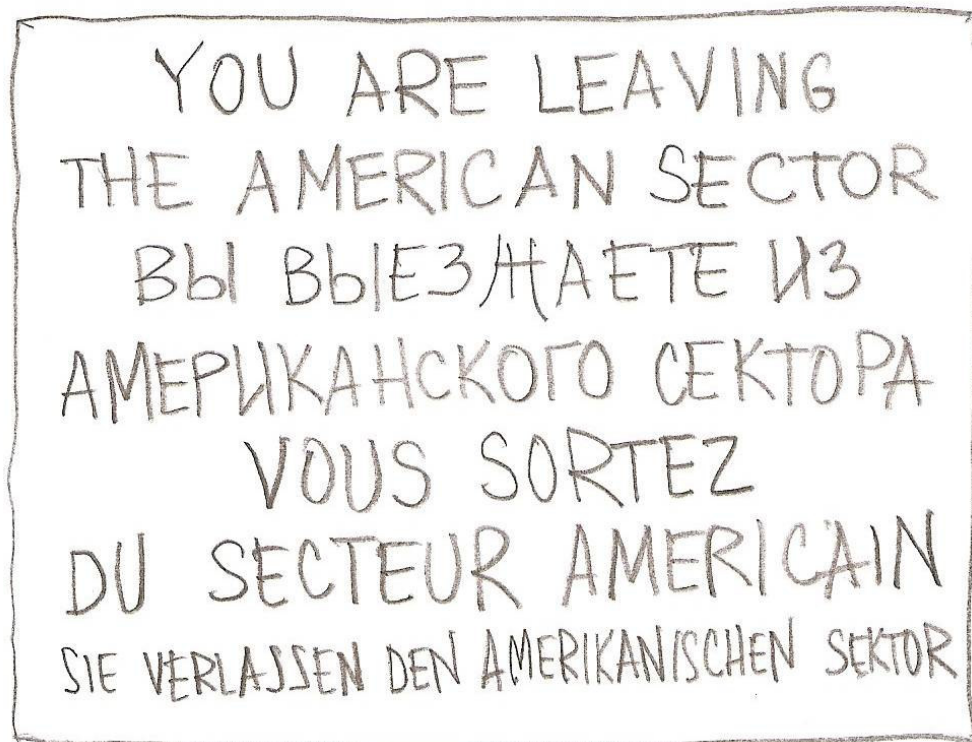 YOU ARE LEAVING
THE AMERICAN SECTOR
ВЫ ВЫЕЗЖАЕТЕ ИЗ
АМЕРИКАНСКОГО СЕКТОРА
VOUS SORTEZ
DU SECTEUR AMERICAIN
SIE VERLASSEN DEN AMERIKANISCHEN SEKTOR